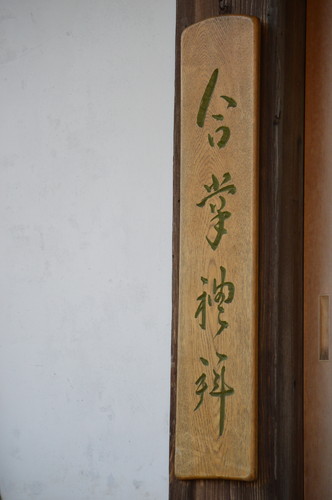 合掌禮拜